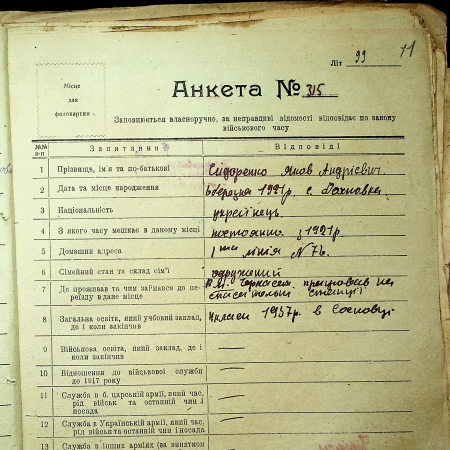 Літ 99 11
Місце
для
фотокартки
Анкета № 315
Заповнюється власноручно, за неправдиві відомості відповідає по закону
військового часу
№№
п-п
Запитання
Відповіді
1 Прізвище, ім'я та по-батькові Сидоренко Яков Андрієвич
2 Дата та місце народження березня 1921 р. с.
3 Національність украінець
4 З якого часу мешкає в даному місці постоянно з 1921 р.
5 Домашня адреса 1 лінія N 76.
6 Сімейний стан та склад сім'ї одружений
7 Де проживав та чим займався до пе- В м. Черкасси працював на
реїзду в дане місце станції
8 Загальна освіта, який учбовий заклад, 4 класи 1937 р. в Сосновці
де і коли закінчив
9 Військова освіта, який заклад, де і —
коли закінчив
10 Відношення до військової служби —
до 1917 року
11 Служба в б. царській армії, який час, —
рід військ та останній чин і
посада
12 Служба в Українській армії, який час, —
рід військ та останній чин і посада
13 Служба в інших арміях (за винятком